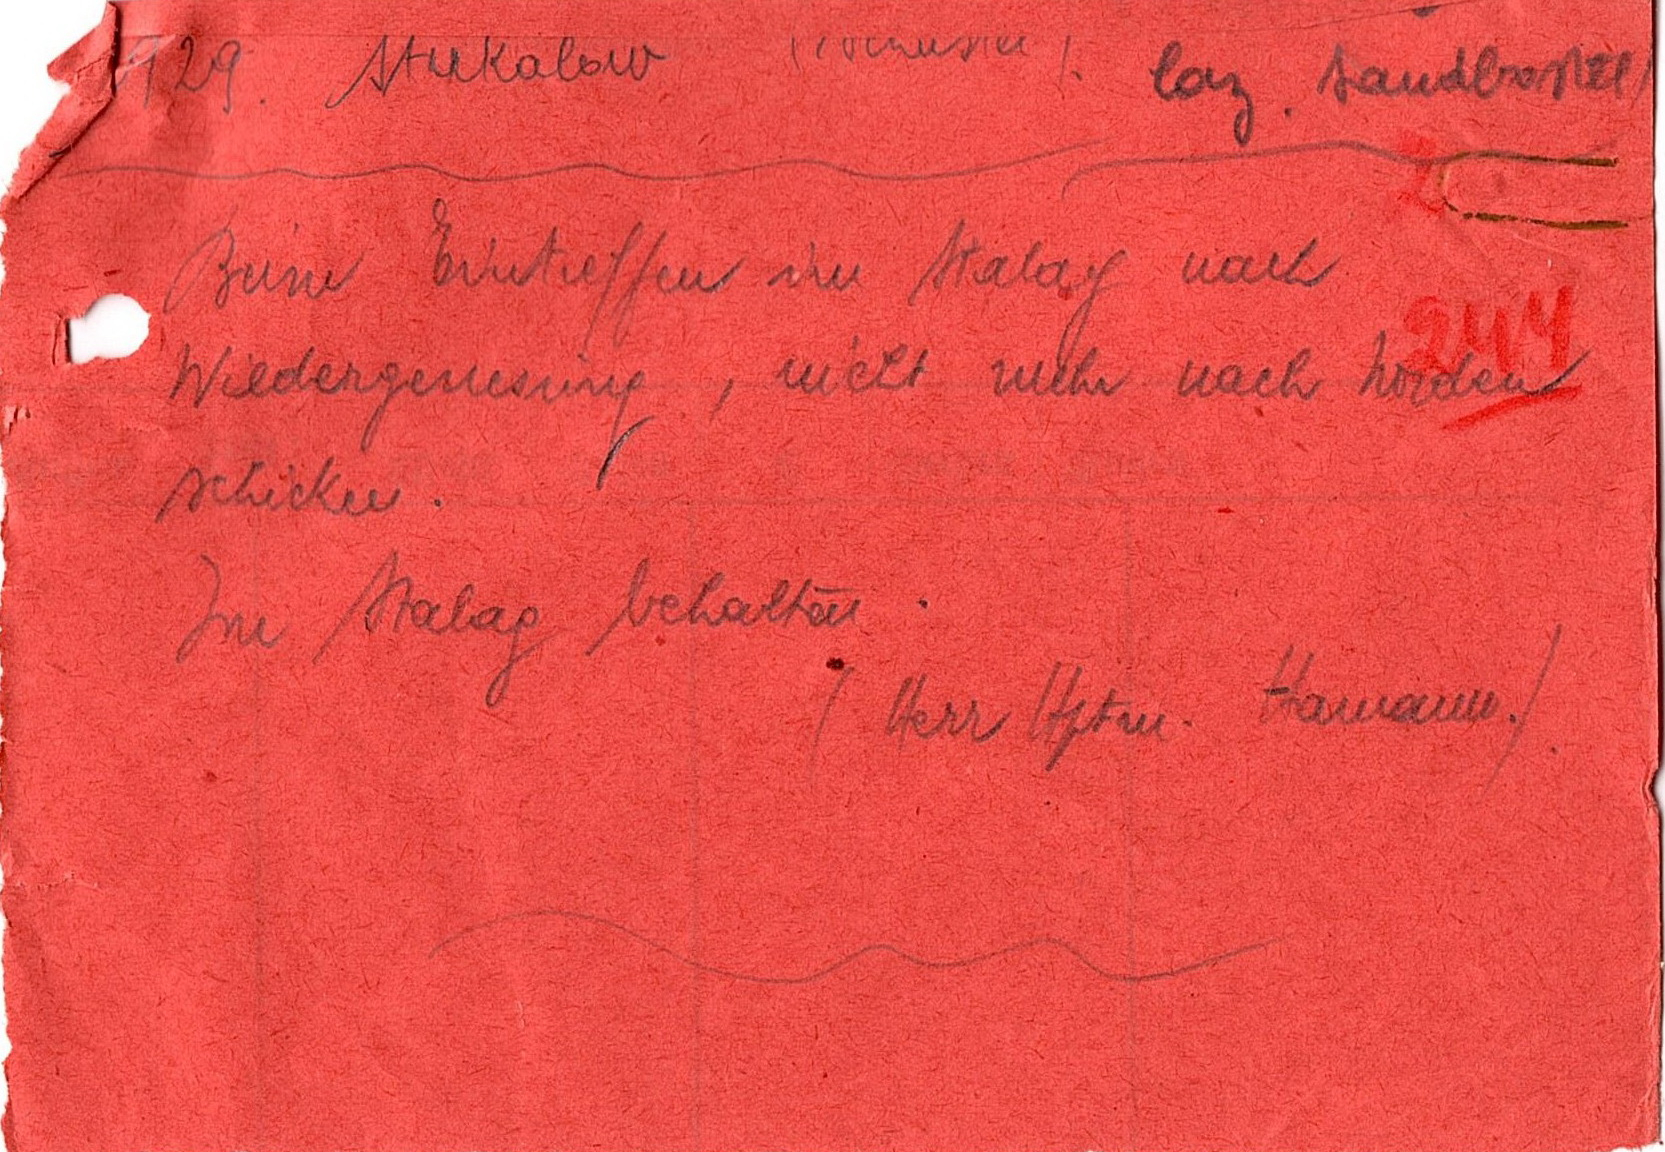 929. Stukalow (Schuster). Laz. Sandbostel
Beim Eintreffen im Stalag nach
244
Wiedergenesung, nicht mehr nach Norden
schicken.
Im Stalag behalten.
(Herr Hptm. Hamann.)